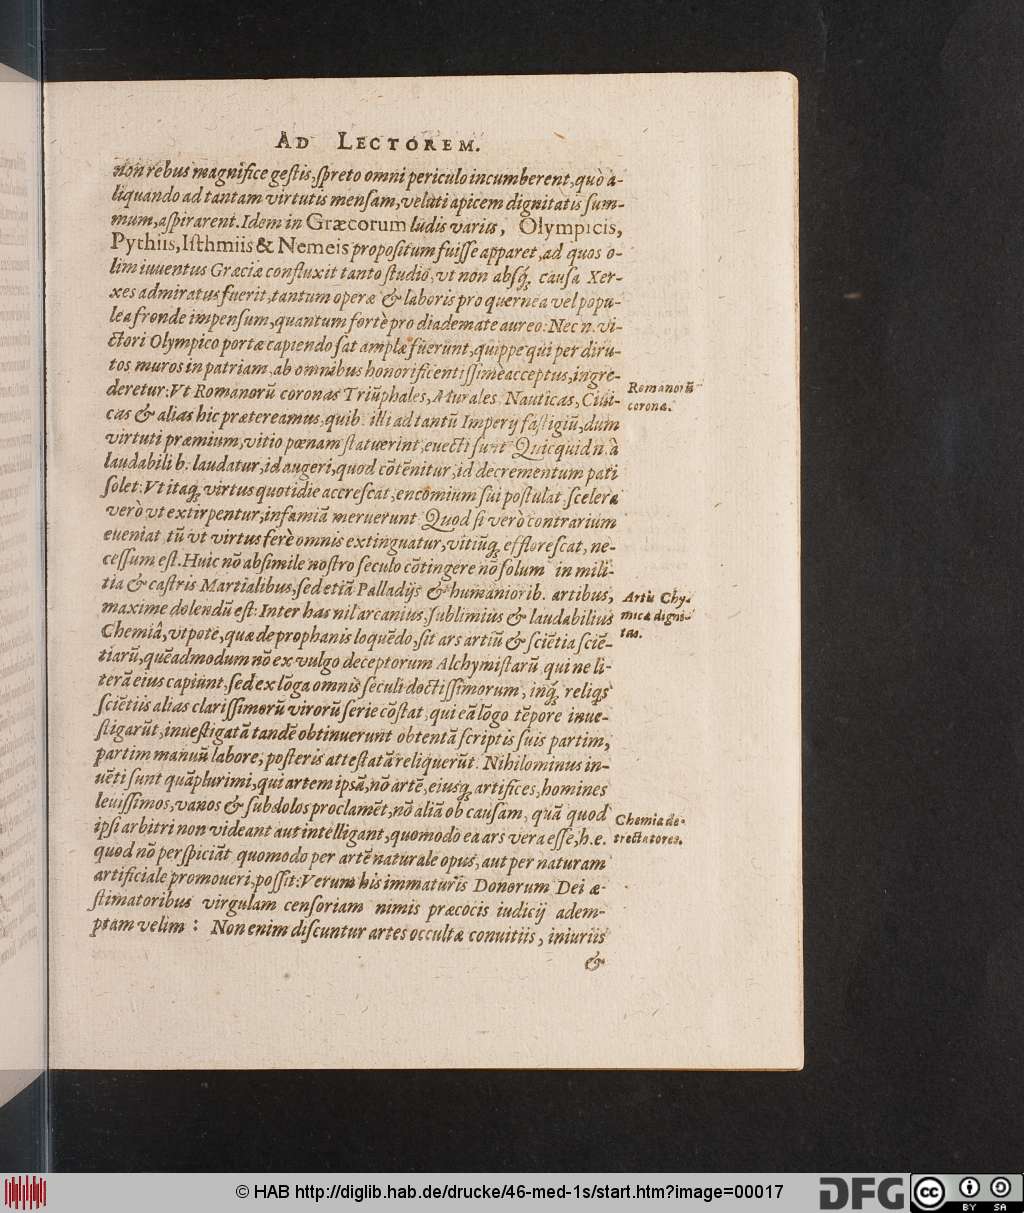 AD LECTOREM.
non rebus magnifice geſtis, ſpreto omni periculo incumberent, quò a-
liquando ad tantam virtutis menſam, veluti apicem dignitatis ſum-
mum, aſpirarent. Idem in Græcorum ludis variis, Olympicis,
Pythiis, Iſthmiis & Nemeis propoſitum fuiſſe apparet, ad quos o-
lim iuuentus Græciæ confluxit tanto ſtudio, vt non abſq́; cauſa Xer-
xes admiratus fuerit, tantum operæ & laboris pro quernea vel popu-
lea fronde impenſum, quantum fortè pro diademate aureo: Nec n. vi-
ctori Olympico portæ capiendo ſat amplæ fuerunt, quippe qui per diru-
tos muros in patriam, ab omnibus honorificentiſſimè acceptus, ingre-
deretur: Vt Romanorũ coronas Triũphales, Murales, Nauticas, Ciui-
cas & alias hic prætereamus, quib. illi ad tantũ Imperij faſtigiũ, dum
virtuti præmium, vitio pœnam ſtatuerint, euecti ſunt. Quicquid n. à
laudabilib. laudatur, id augeri, quod cõtẽnitur, id decrementum pati
ſolet: Vt itaq; virtus quotidie accreſcat, encomium ſui poſtulat, ſcelera
verò vt extirpentur, infamiã meruerunt. Quod ſi verò contrarium
eueniat, tũ vt virtus ferè omnis extinguatur, vitiũq; effloreſcat, ne-
ceſſum eſt. Huic nõ abſimile noſtro ſeculo cõtingere nõ ſolum in mili-
tia & caſtris Martialibus, ſed etiã Palladijs & humaniorib. artibus,
maxime dolendũ eſt: Inter has nil arcanius, ſublimius & laudabilius
Chemiâ, vtpote, quæ de prophanis loquẽdo, ſit ars artiũ & ſciẽtia ſciẽ-
tiarũ, quẽadmodum nõ ex vulgo deceptorum Alchymiſtarũ qui ne li-
terã eius capiunt, ſed ex lõga omnis ſeculi doctiſſimorum, inq́; reliqs
ſciẽtiis alias clariſſimorũ virorũ ſerie cõſtat, qui eã lõgo tẽpore inue-
ſtigarũt, inueſtigatã tandẽ obtinuerunt obtentã ſcriptis ſuis partim,
partim manuũ labore, poſteris atteſtatã reliquerũt. Nihilominus in-
uẽti ſunt quãplurimi, qui artem ipsã, nõ artẽ, eiusq; artifices, homines
leuiſſimos, vanos & ſubdolos proclamẽt, nõ aliã ob cauſam, quã quod
ipſi arbitri non videant aut intelligant, quomodo ea ars vera eſſe, h.e.
quod nõ perſpiciãt quomodo per artẽ naturale opus, aut per naturam
artificiale promoueri, poſſit: Verum his immaturis Donorum Dei æ-
ſtimatoribus virgulam cenſoriam nimis præcocis iudicij adem-
ptam velim: Non enim diſcuntur artes occultæ conuitiis, iniuriis
&
Romanorũ
coronæ.
Artis Chy-
micæ digni-
tas.
Chemiæ de-
trectatores.
© HAB http://diglib.hab.de/drucke/46-med-1s/start.htm?image=00017
DFG
cc
BY SA